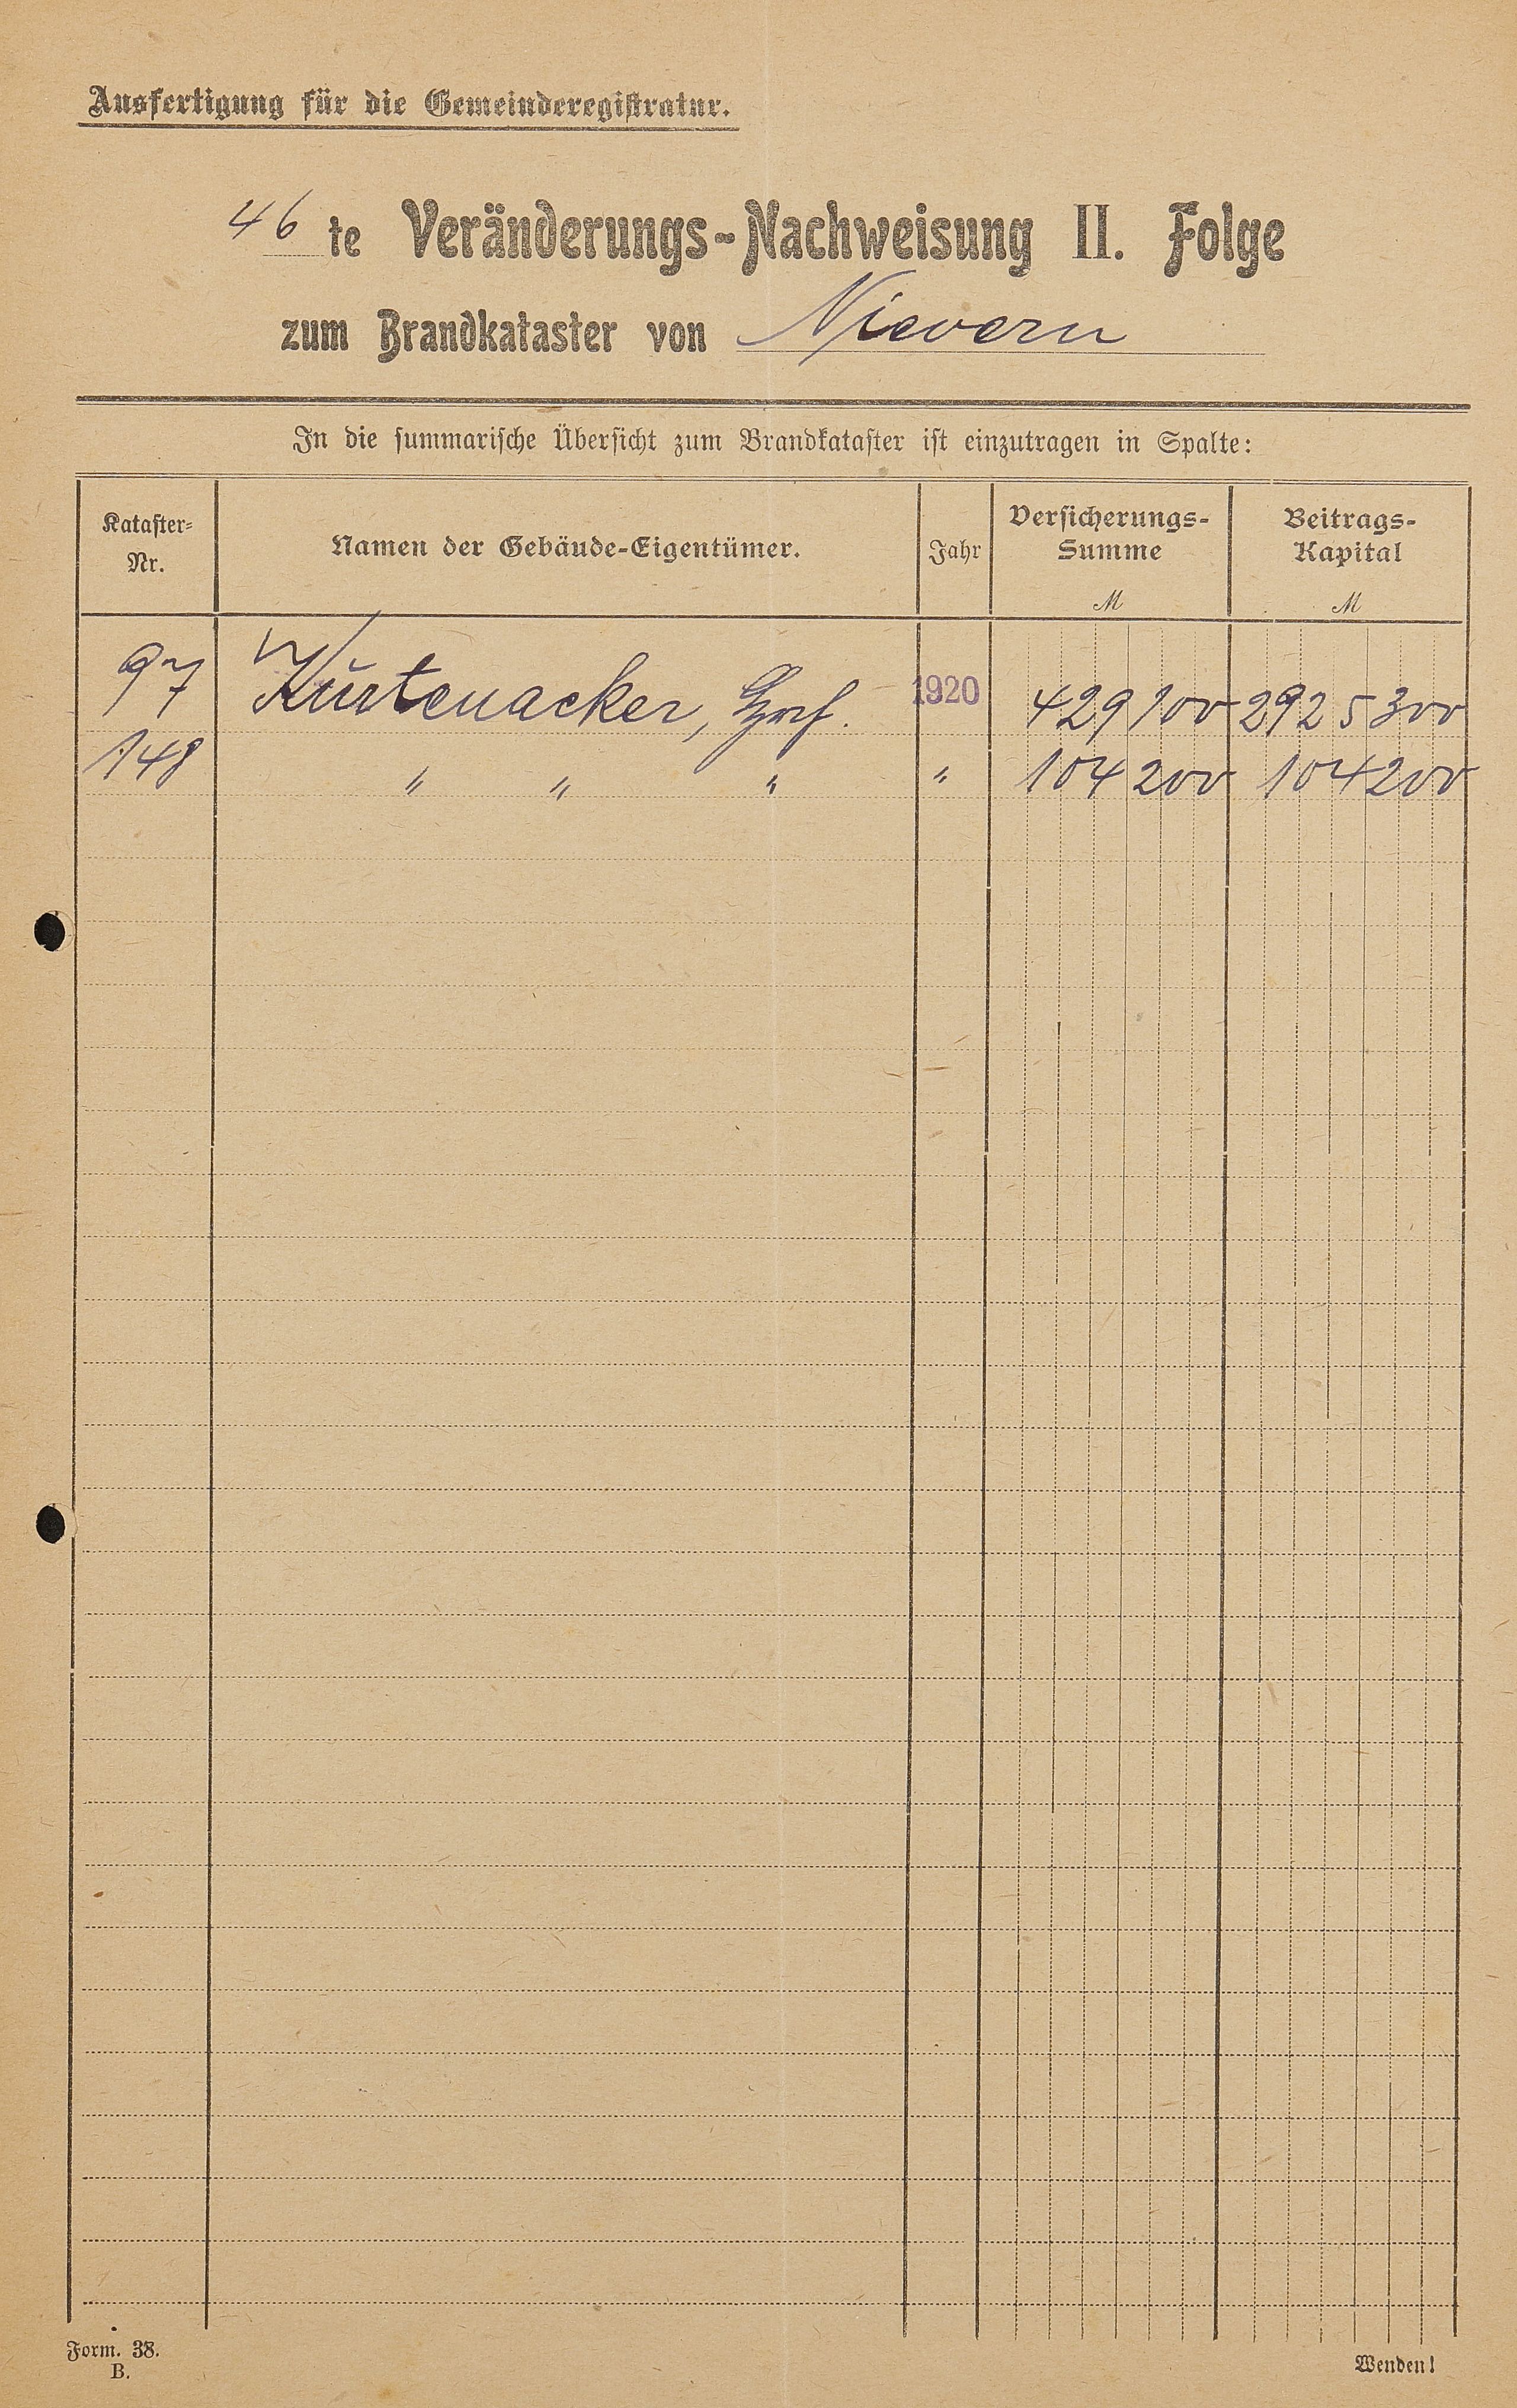 Ausfertigung für die Gemeinderegistratur.
46 te Veränderungs-Nachweisung II. Folge
zum Brandkataster von Nievern
In die summarische Übersicht zum Brandkataster ist einzutragen in Spalte:
Kataster-Nr. Namen der Gebäude-Eigentümer. Jahr Versicherungs-Summe M Beitrags-Kapital M
97 Kurtenacker, 1920 429100 2925300
148 " " " " 104200 104200
Form. 38.
B.
Wenden!